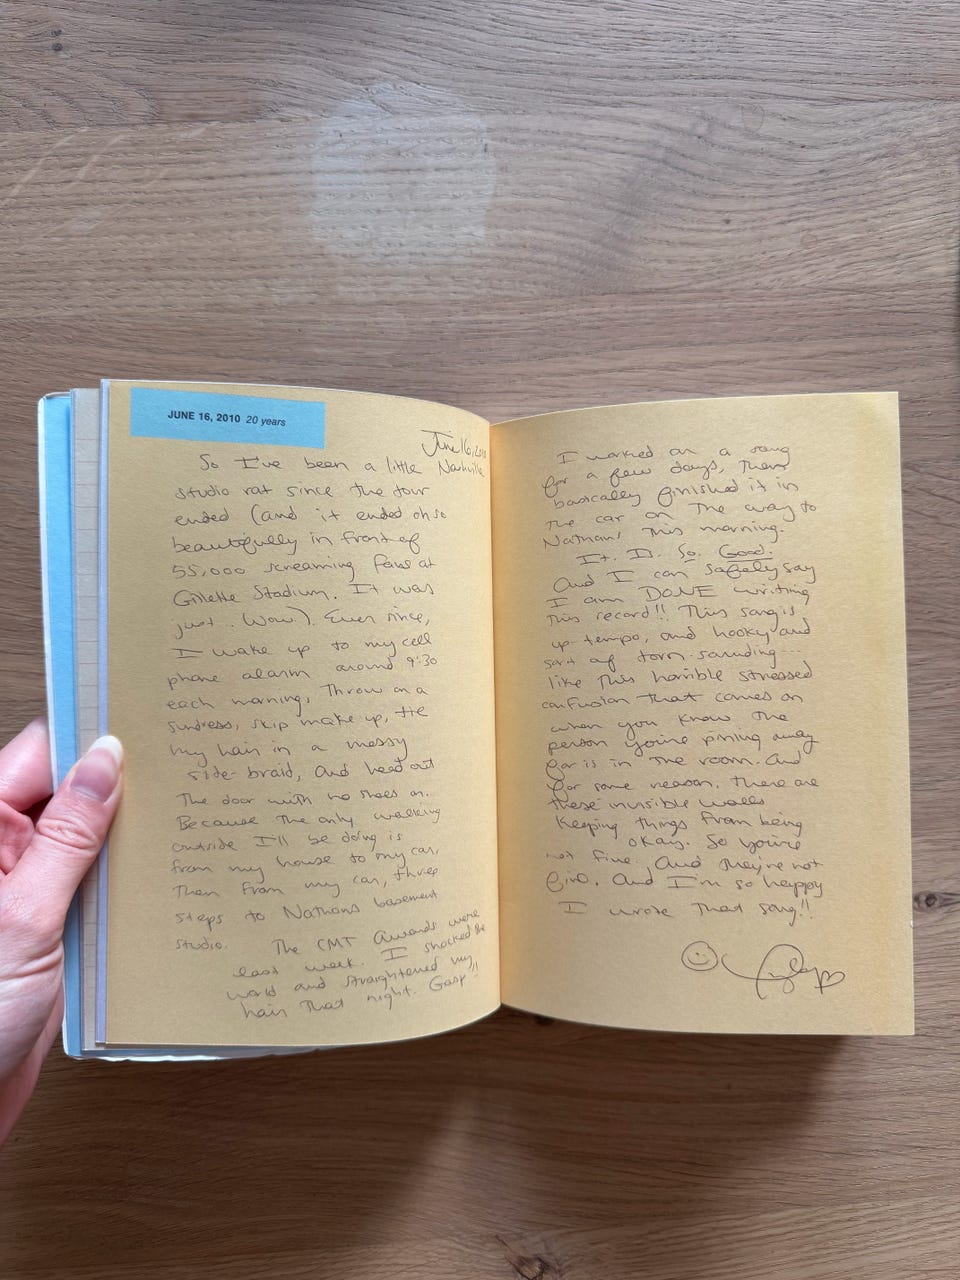 JUNE 16, 2010 20 years
June 16, 2010
Nashville
So I've been a little
studio rat since the tour
ended (and it ended oh so
beautifully in front of
55,000 screaming fans at
Gillette Stadium. It was
just.. Wow.). Ever since,
I wake up to my cell
phone alarm around 9:30
each morning, throw on a
sundress, skip make up, tie
my hair in a messy
side-braid, and head out
the door with no shoes on.
Because the only walking
outside I'll be doing is
from my house to my car,
then from my car, three
steps to Nathans basement
studio.
The CMT Awards were
last week. I shocked the
world and straightened my
hair that night. Gasp!!
I worked on a song
for a few days, then
basically finished it in
the car on the way to
Nathans this morning.
It. Is. So. Good.
And I can safely say
I am DONE writing
this record!! This song is
up-tempo, and hooky and
sort of torn-sounding...
like this horrible stressed
confusion that comes on
when you know the
person you're pining away
for is in the room. And
for some reason, there are
these invisible walls
keeping things from being
okay. So you're
not fine. And they're not
fine. And I'm so happy
I wrote that song!!